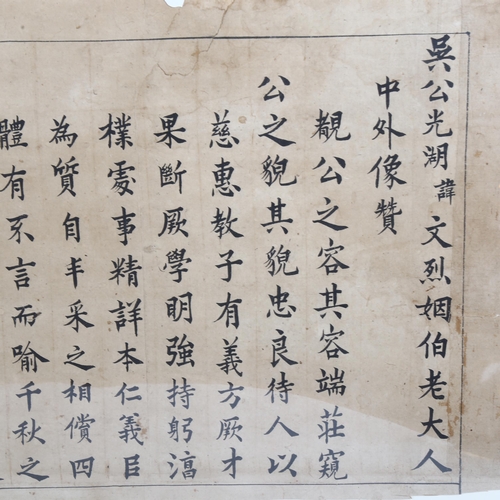 吳公光湖諱文烈姻伯老大人
中外像贊
覩公之容其容端莊窺
公之貌其貌忠良待人以
慈惠教子有義方厥才
果斷厥學明強持躬
樸處事精詳本仁義
為質自丰采之相償四
體有不言而喻千秋之